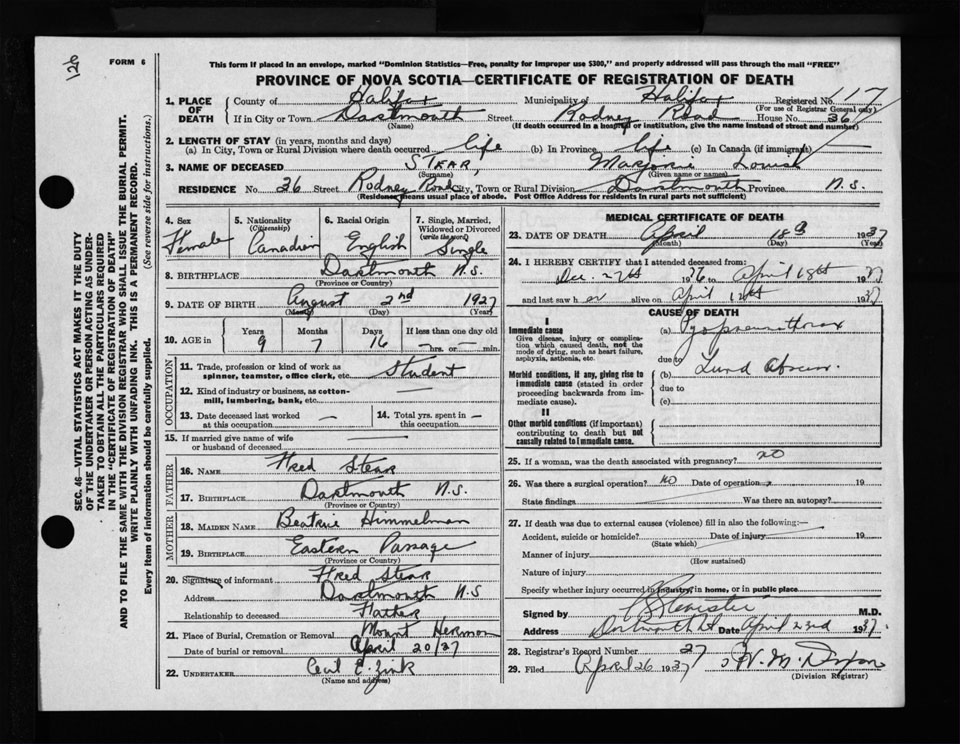 126
FORM 6
This form if placed in an envelope, marked "Dominion Statistics—Free, penalty for improper use $300," and properly addressed will pass through the mail "FREE"
PROVINCE OF NOVA SCOTIA—CERTIFICATE OF REGISTRATION OF DEATH
SEC. 46—VITAL STATISTICS ACT MAKES IT THE DUTY
OF THE UNDERTAKER OR PERSON ACTING AS UNDER-
TAKER TO OBTAIN ALL THE PARTICULARS REQUIRED
IN THE "CERTIFICATE OF REGISTRATION OF DEATH"
AND TO FILE THE SAME WITH THE DIVISION REGISTRAR WHO SHALL ISSUE THE BURIAL PERMIT.
WRITE PLAINLY WITH UNFADING INK. THIS IS A PERMANENT RECORD.
Every item of information should be carefully supplied. (See reverse side for instructions.)
1. PLACE OF DEATH County of Halifax Municipality of Halifax Registered No. 117
(For use of Registrar General only)
If in City or Town Dartmouth Street Rodney Road House No. 36
(Name) (If death occurred in a hospital or institution, give the name instead of street and number)
2. LENGTH OF STAY (in years, months and days)
(a) In City, Town or Rural Division where death occurred life (b) In Province life (c) In Canada (if immigrant) —
3. NAME OF DECEASED STEAR, Marjorie Louise
(Surname) (Given name or names)
RESIDENCE No. 26 Street Rodney Road City, Town or Rural Division Dartmouth Province N.S.
(Residence means usual place of abode. Post Office Address for residents in rural parts not sufficient)
4. Sex Female
5. Nationality (Citizenship) Canadian
6. Racial Origin English
7. Single, Married, Widowed or Divorced (write the word) Single
8. BIRTHPLACE Dartmouth N.S.
(Province or Country)
9. DATE OF BIRTH August 2nd 1927
(Month) (Day) (Year)
10. AGE in Years 9 Months 7 Days 16 If less than one day old — hrs. or — min.
OCCUPATION
11. Trade, profession or kind of work as spinner, teamster, office clerk, etc. Student
12. Kind of industry or business, as cotton-mill, lumbering, bank, etc. —
13. Date deceased last worked at this occupation —
14. Total yrs. spent in this occupation —
15. If married give name of wife or husband of deceased —
FATHER
16. NAME Fred Stear
17. BIRTHPLACE Dartmouth N.S.
MOTHER
18. MAIDEN NAME Beatrice Himmelman
19. BIRTHPLACE Eastern Passage
(Province or Country)
20. Signature of informant Fred Stear
Address Dartmouth N.S
Relationship to deceased Father
21. Place of Burial, Cremation or Removal Mount Hermon
Date of burial or removal April 20/37
22. UNDERTAKER Cecil E. Zink
(Name and address)
MEDICAL CERTIFICATE OF DEATH
23. DATE OF DEATH April 18 1937
(Month) (Day)
24. I HEREBY CERTIFY that I attended deceased from:
Dec. 27th 1936 to April 18th 1937
and last saw her alive on April 12th 1937
CAUSE OF DEATH
I
Immediate cause
Give disease, injury or complication which caused death, not the mode of dying, such as heart failure, asphyxia, asthenia, etc.
(a) Pyopneumothorax
due to
Morbid conditions, if any, giving rise to immediate cause (stated in order proceeding backwards from immediate cause).
(b) Lung Abscess.
due to
(c)
II
Other morbid conditions (if important) contributing to death but not causally related to immediate cause.
25. If a woman, was the death associated with pregnancy? no
26. Was there a surgical operation? no Date of operation 19
State findings Was there an autopsy?
27. If death was due to external causes (violence) fill in also the following:—
Accident, suicide or homicide? Date of injury 19
(State which)
Manner of injury
(How sustained)
Nature of injury
Specify whether injury occurred in industry, in home, or in public place
Signed by M.D.
Address Dartmouth Date April 23rd 1937
28. Registrar's Record Number 27
29. Filed April 26 1937 W. M. Dixon
(Division Registrar)